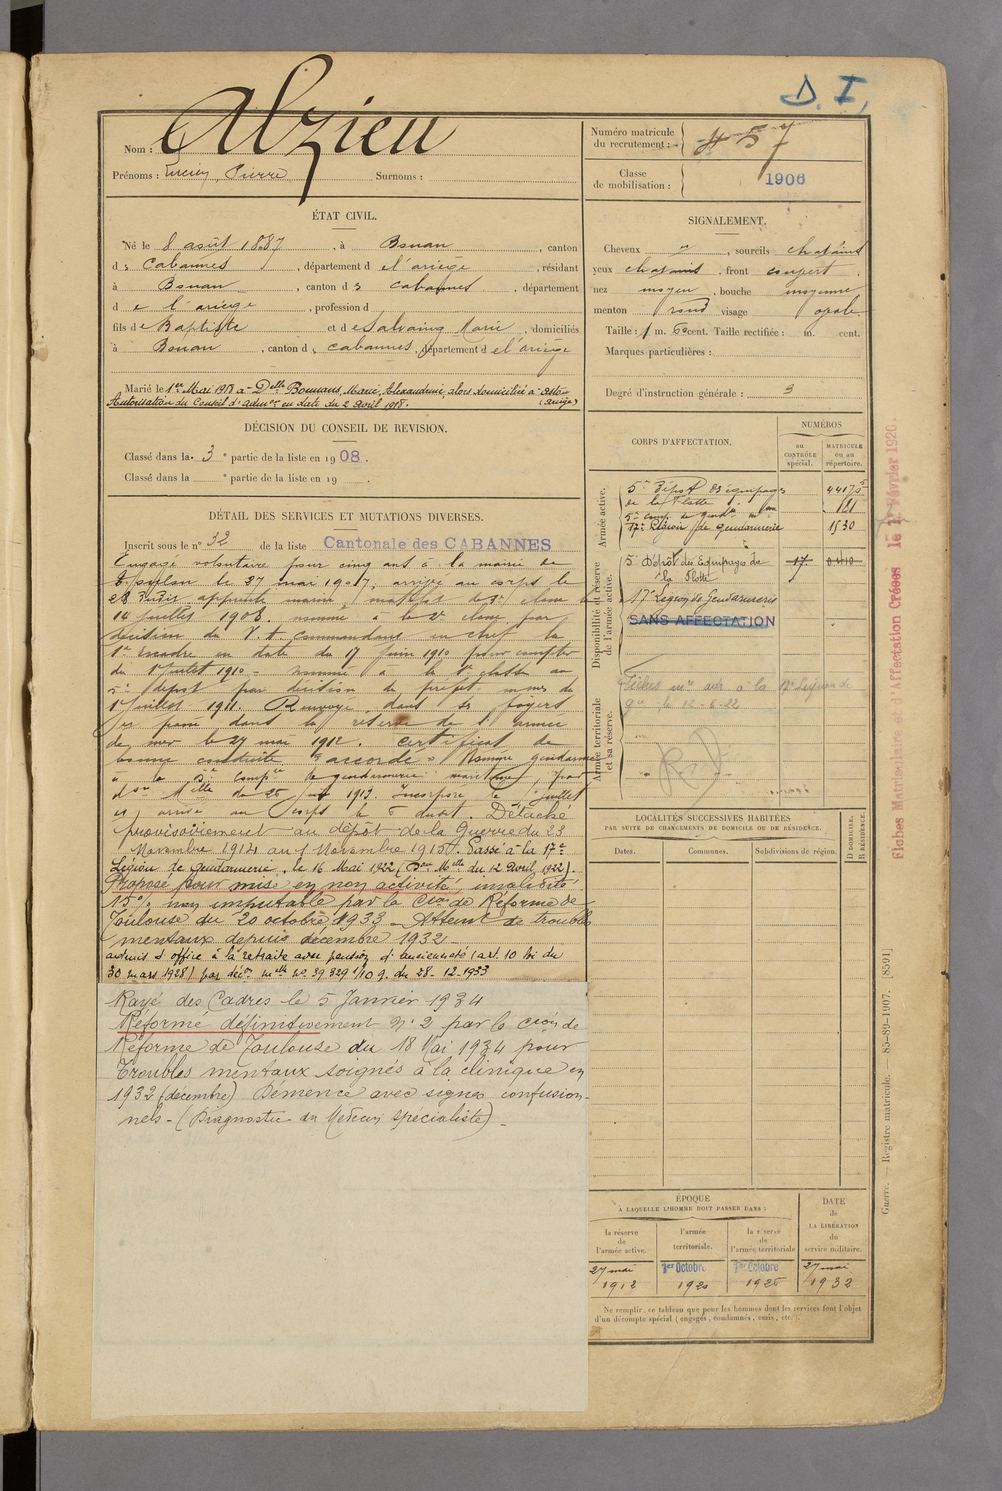 D. I.
Nom : Alzieu
Prénoms : Lucien, Pierre Surnoms :
Numéro matricule du recrutement : 457
Classe de mobilisation : 1906
ÉTAT CIVIL.
Né le 8 août 1887, à Bouan, canton
de Cabannes, département de l'ariège, résidant
à Bouan, canton des Cabannes, département
de l'ariège, profession d
fils de Baptiste et de Salvaing Marie, domiciliés
à Bouan, canton de Cabannes, département de l'ariège
Marié le 1er Mai 1918 à Delle Bonnans, Marie, Alexandrine, alors domiciliée à Aston
(Ariège)
Autorisation du Conseil d'admon en date du 2 avril 1918.
DÉCISION DU CONSEIL DE REVISION.
Classé dans la 3e partie de la liste en 1908.
Classé dans la e partie de la liste en 19
DÉTAIL DES SERVICES ET MUTATIONS DIVERSES.
Inscrit sous le n° 32 de la liste Cantonale des CABANNES
Engagé volontaire pour cinq ans à la mairie de
Toulon le 27 mai 1907, arrivé au corps le
28 dudit apprenti marin, matelot de 3e classe le
14 juillet 1908. nommé à la 2e classe par
décision du V. A. Commandant en chef la
1re escadre en date du 17 juin 1910 pour compter
du 1er juillet 1910 - nommé à la 1re classe au
5e dépôt par décision du préfet mme du
1er juillet 1911. Renvoyé dans ses foyers
et passé dans la réserve de l'armée
de mer le 27 mai 1912. certificat de
bonne conduite "accordé". Nommé gendarme
à la 5e compie de gendarmerie maritime, par
don Mlle du 25 1913. Incorporé le juillet
et arrivé au corps le 6 dudit. Détaché
provisoirement au dépôt de la Guerre du 23
Novembre 1914 au 1 Novembre 1915. Passé à la 17e
Légion de Gendarmerie, le 16 Mai 1922 (Don Mlle du 12 Avril 1922).
Proposé pour mise en non activité, invalidité
15% non imputable par la Cion de Réforme de
Toulouse du 20 octobre 1933 - Atteint de troubles
mentaux depuis décembre 1932 -
admis d'office à la retraite avec pension d'ancienneté (art. 10 loi du
30 mars 1928) par décon mlle no 29329 1/10 g. du 28-12-1933
Rayé des Cadres le 5 Janvier 1934
Réformé définitivement N° 2 par la Cion de
Réforme de Toulouse du 18 Mai 1934 pour
Troubles mentaux soignés à la clinique en
1932 (décembre) Démence avec signes confusion-
nels - (Diagnostic du Médecin spécialiste) -
SIGNALEMENT.
Cheveux , sourcils chatains
yeux chatains, front couvert
nez moyen, bouche moyenne
menton rond visage ovale
Taille : 1 m. 63 cent. Taille rectifiée : m. cent.
Marques particulières :
Degré d'instruction générale : 3
CORPS D'AFFECTATION.
NUMÉROS
au CONTRÔLE spécial.
MATRICULE ou au répertoire.
Armée active.
5e Dépôt des équipages
de la Flotte
181
17e Légion de Gendarmerie 1530
Disponibilité et réserve de l'armée active.
5e Dépôt des Equipages de 17
la Flotte
17e Légion de Gendarmerie
SANS AFFECTATION
Armée territoriale et sa réserve.
Fiches mle adr. à la 17e Légion de
Gie le 12-6-22
LOCALITÉS SUCCESSIVES HABITÉES
PAR SUITE DE CHANGEMENTS DE DOMICILE OU DE RÉSIDENCE.
Dates. Communes. Subdivisions de région. D DOMICILE. R RÉSIDENCE.
ÉPOQUE
À LAQUELLE L'HOMME DOIT PASSER DANS :
la réserve de l'armée active.
l'armée territoriale.
la réserve de l'armée territoriale
DATE de LA LIBÉRATION du service militaire.
27 mai 1912
1er Octobre 1920
1er Octobre 1926
27 mai 1932
Ne remplir ce tableau que pour les hommes dont les services font l'objet
d'un décompte spécial (engagés, condamnés, omis, etc.).
Fiches Matriculaire et d'Affectation Créées le 1er Février 1926.
Guerre. — Registre matricule. — 85-89-1907. [8591]